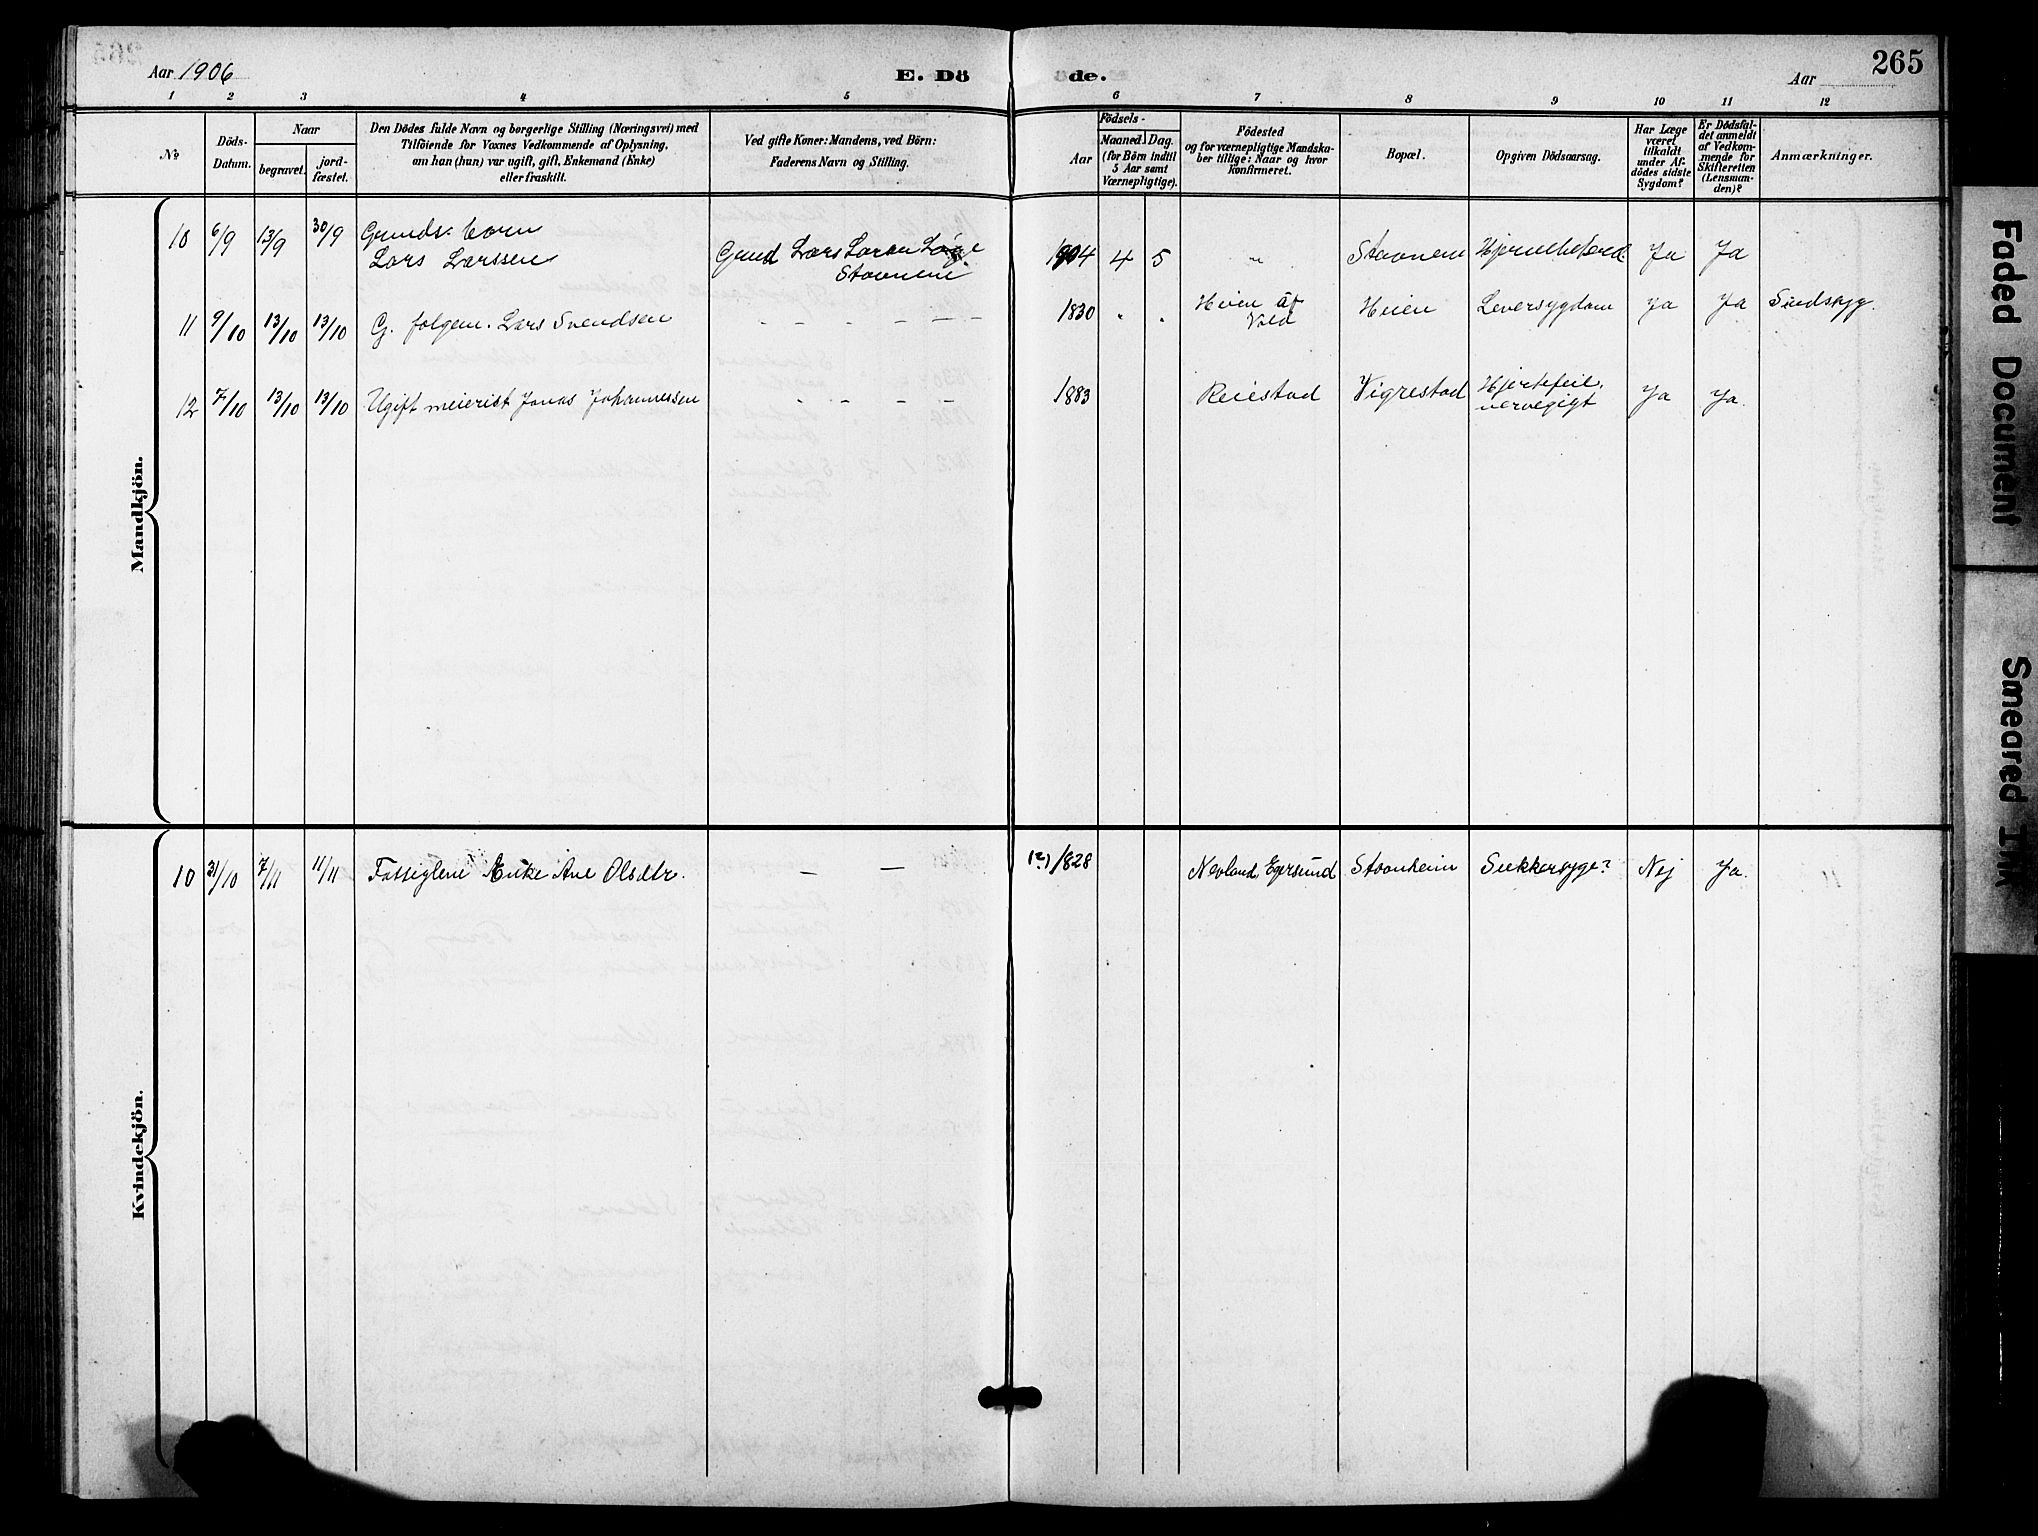 Aar 1906
E. Dö
de.
Aar
265
1 2 3 4 5 6 7 8 9 10 11 12
No
Döds-
Datum.
Naar
begravet.
jord-
fæstet.
Den Dödes fulde Navn og borgerlige Stilling (Næringsvei) med
Tilföiende for Voxnes Vedkommende af Oplysning,
om han (hun) var ugift, gift, Enkemand (Enke)
eller fraskilt.
Ved gifte Koner: Mandens, ved Börn:
Faderens Navn og Stilling.
Födsels-
Aar
Maaned. Dag.
(for Börn indtil
5 Aar samt
Værnepligtige).
Födested
og for værnepligtige Mandska-
ber tillige: Naar og hvor
konfirmeret.
Bopæl.
Opgiven Dödsaarsag.
Har Læge
været
tilkaldt
under Af-
dödes sidste
Sygdom?
Er Dödsfal-
det anmeldt
af Vedkom-
mende for
Skifteretten
(Lensman-
den)?
Anmærkninger.
Mandkjön.
10 6/9 13/9 30/9 Gmds. barn
Lars Larssen
Gmd Lars Larsen
Stavnem
1904 4 5 " Stavnem Ja Ja
11 9/10 13/10 13/10 G. folgem. Lars Svendsen - - - - - 1830 " . Heien af
Vold
Heien Leversygdom Ja Ja Sindssyg.
12 7/10 13/10 13/10 Ugift meierist Jonas Johannessen - - - - - 1883 Reiestad Vigrestad Hjertefeil.
nervegigt
Ja Ja.
Kvindekjön.
10 31/10 7/11 11/11 Fattiglem Enke Ane Olsdtr. - - (?)1828 Nevland, Egersund Stavnheim Sukkersyge? Nej Ja.
Faded Document
Smeared Ink